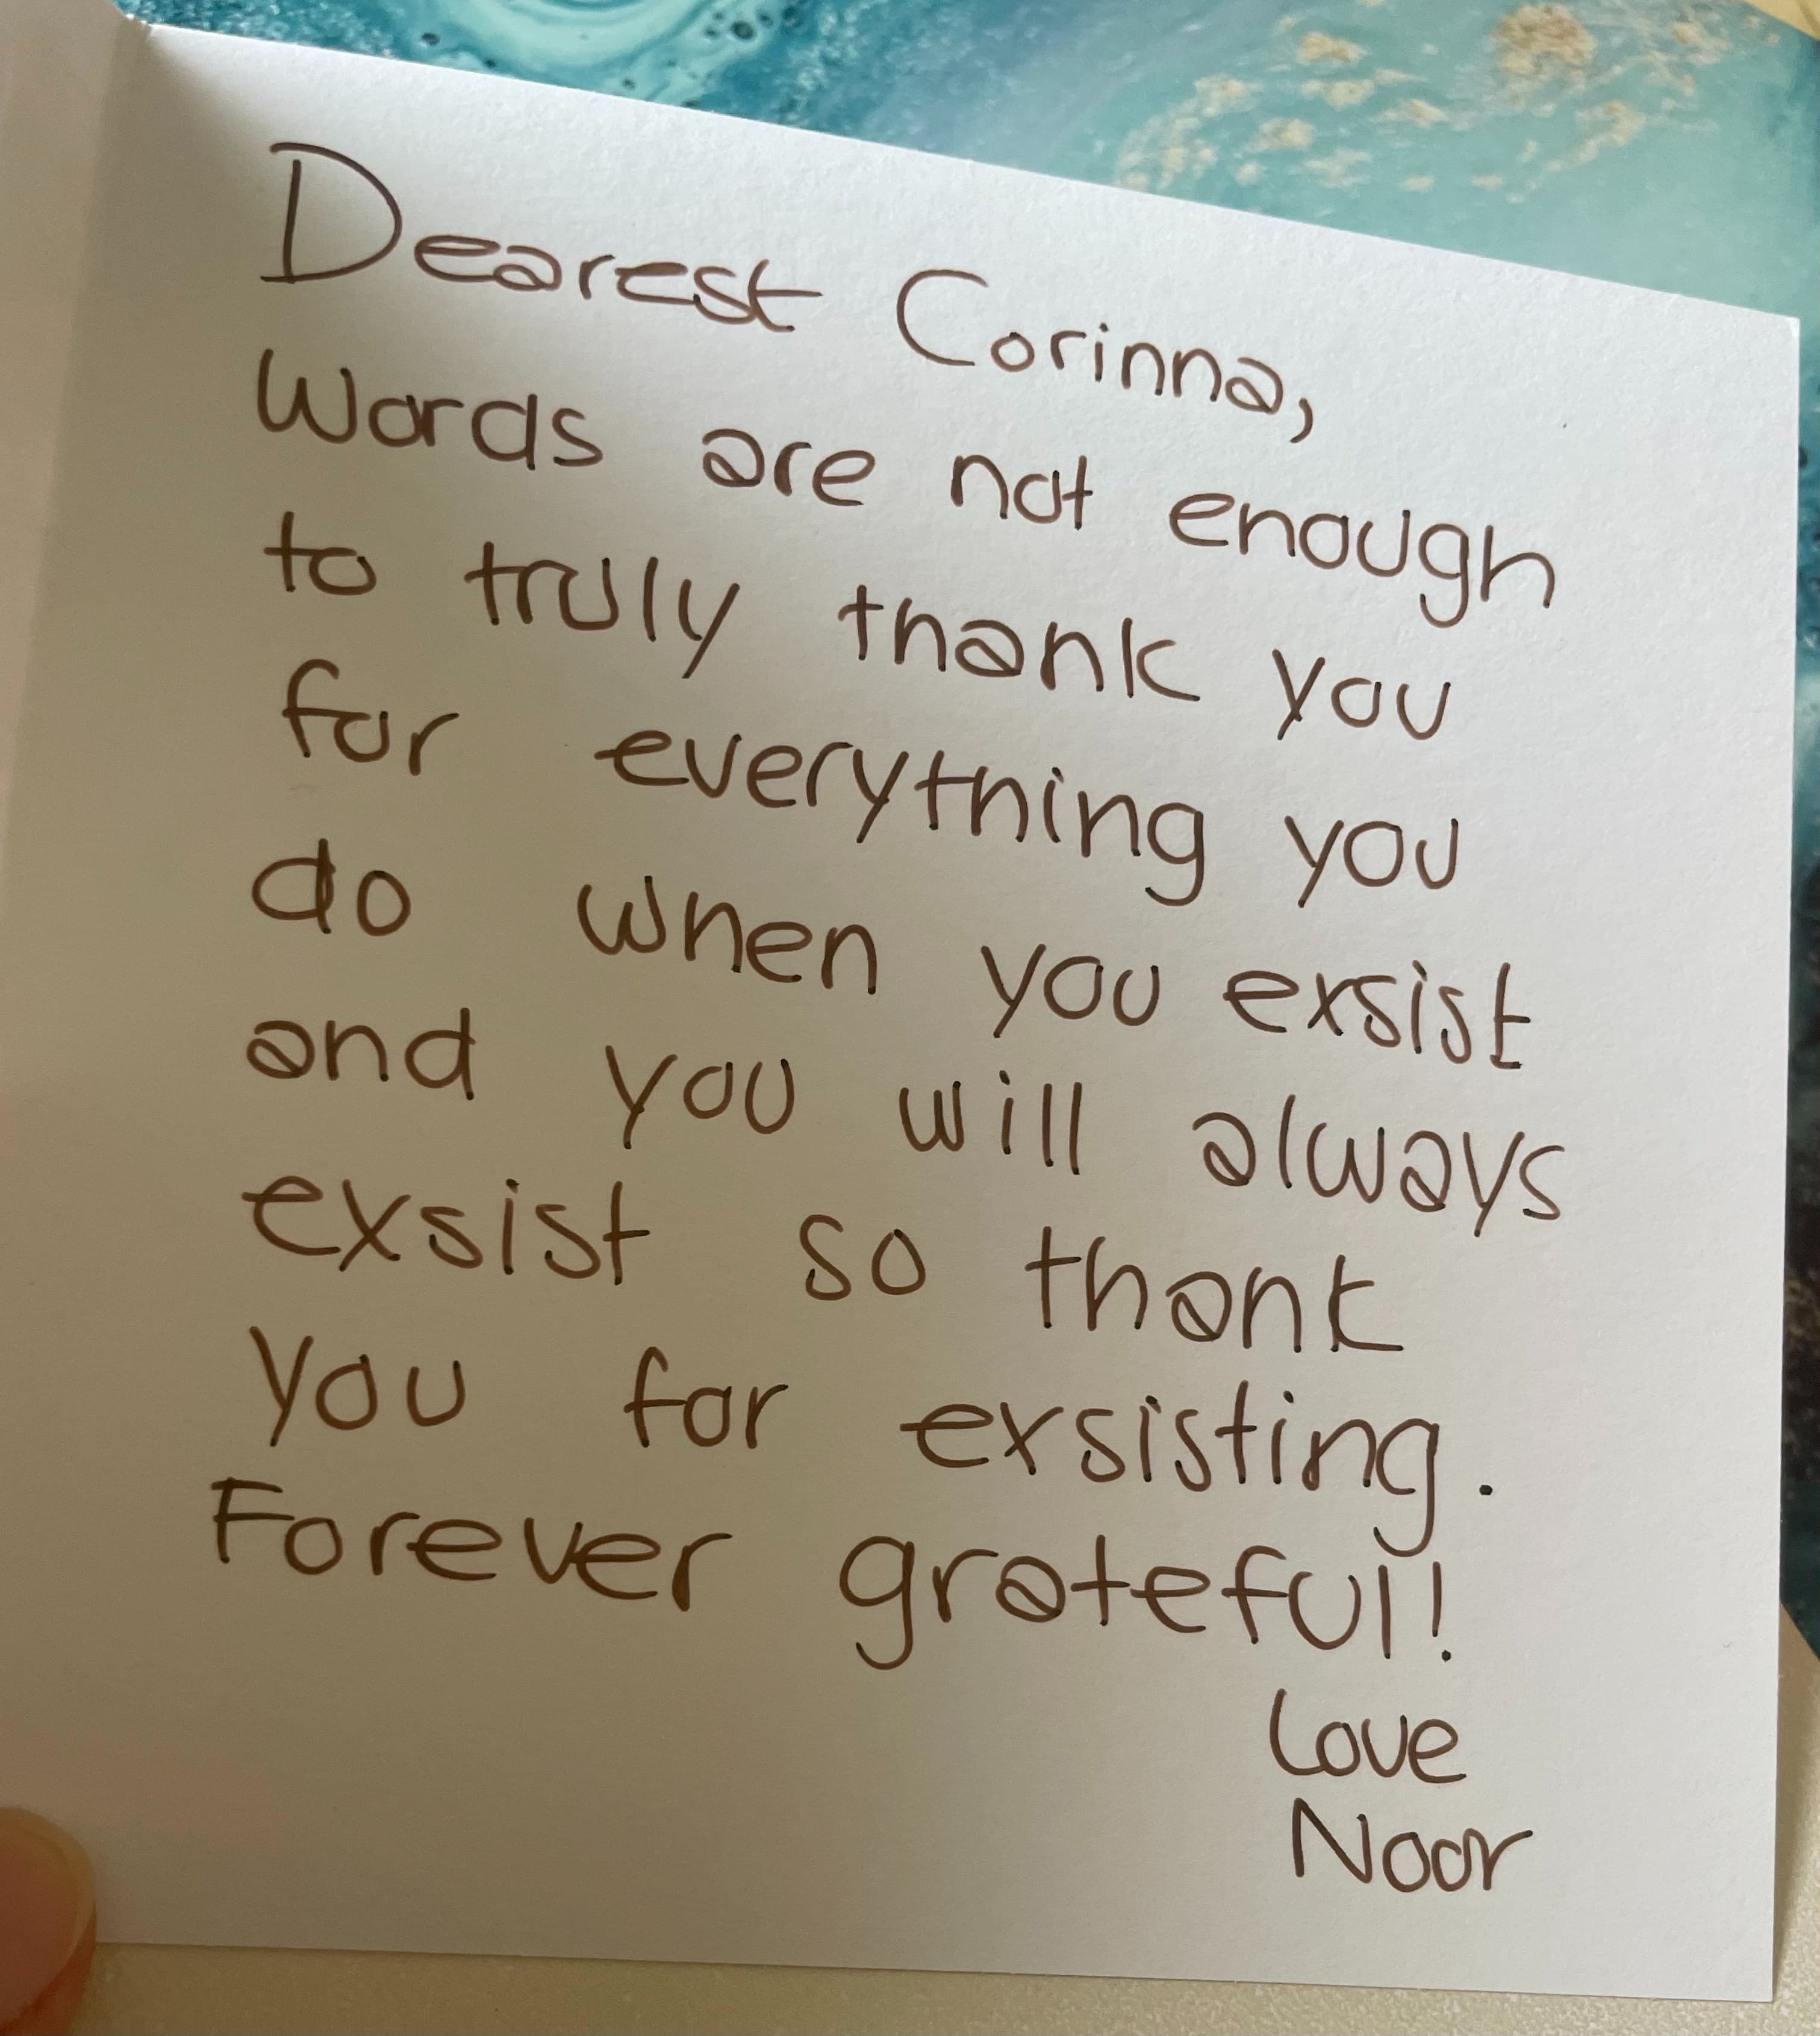 Dearest Corinna,
Words are not enough
to truly thank you
for everything you
do when you exsist
and you will always
exsist so thank
you for exsisting.
Forever grateful!
Love
Noor